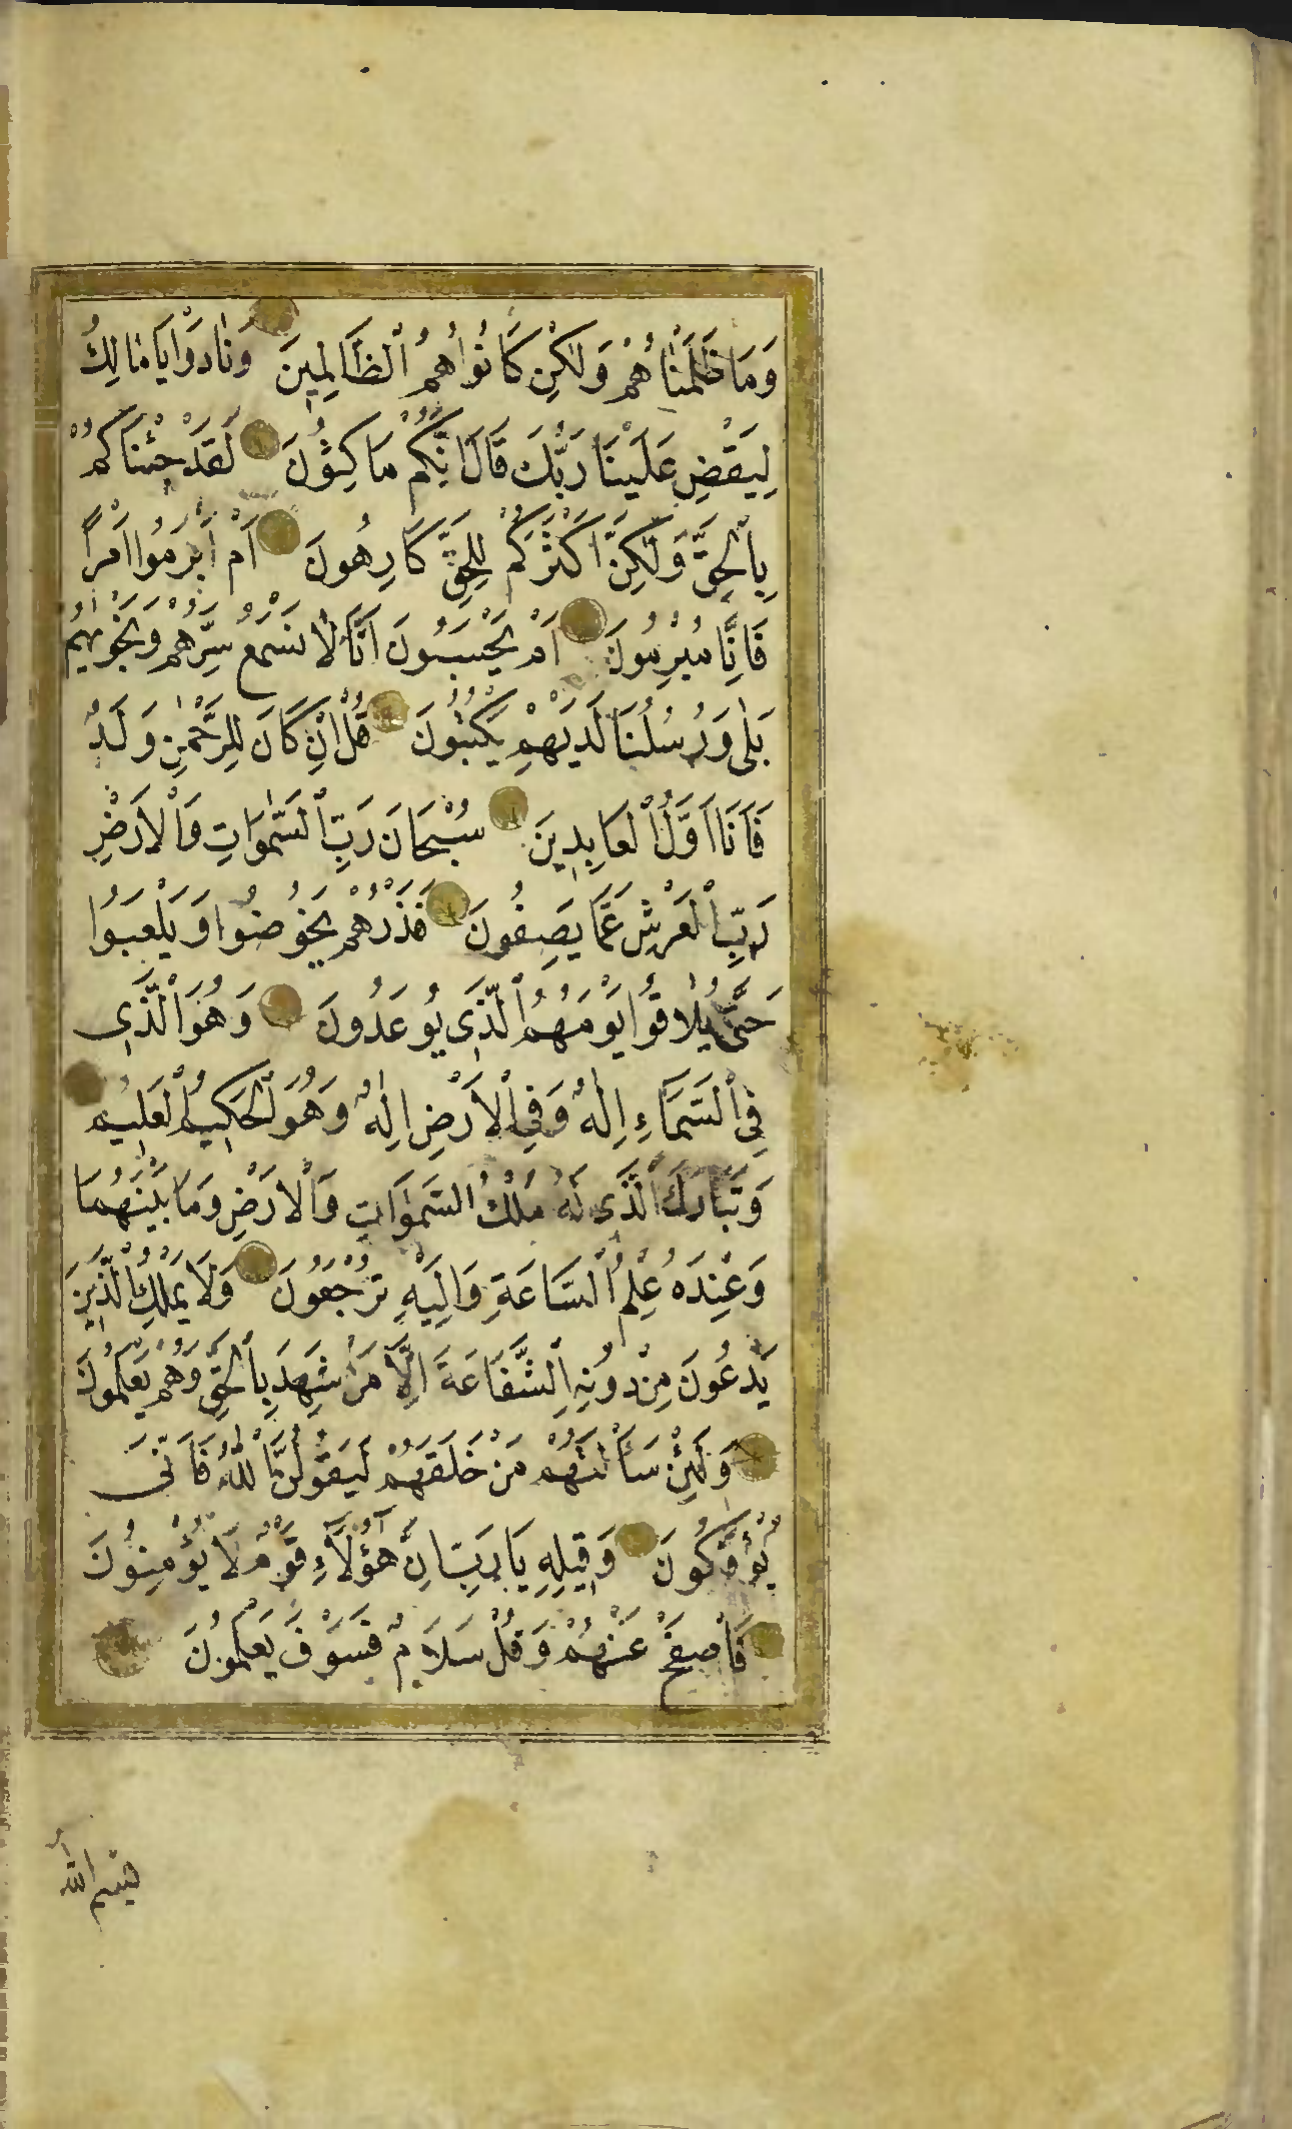 وَمَا ظَلَمْنَاهُمْ وَلٰكِنْ كَانُوا هُمُ ٱلظَّالِمِينَ وَنَادَوْا يَا مَالِكُ
لِيَقْضِ عَلَيْنَا رَبُّكَ قَالَ اِنَّكُمْ مَاكِثُونَ لَقَدْ جِئْنَاكُمْ
بِٱلْحَقِّ وَلٰكِنَّ اَكْثَرَكُمْ لِلْحَقِّ كَارِهُونَ اَمْ اَبْرَمُوا اَمْرًا
فَاِنَّا مُبْرِمُونَ اَمْ يَحْسَبُونَ اَنَّا لَا نَسْمَعُ سِرَّهُمْ وَنَجْوٰيهُمْ
بَلٰى وَرُسُلُنَا لَدَيْهِمْ يَكْتُبُونَ قُلْ اِنْ كَانَ لِلرَّحْمٰنِ وَلَدٌ
فَاَنَا اَوَّلُ ٱلْعَابِدِينَ سُبْحَانَ رَبِّ ٱلسَّمٰوَاتِ وَٱلْاَرْضِ
رَبِّ ٱلْعَرْشِ عَمَّا يَصِفُونَ فَذَرْهُمْ يَخُوضُوا وَيَلْعَبُوا
حَتّٰى يُلَاقُوا يَوْمَهُمُ ٱلَّذِي يُوعَدُونَ وَهُوَ ٱلَّذِي
فِي ٱلسَّمَاءِ اِلٰهٌ وَفِي ٱلْاَرْضِ اِلٰهٌ وَهُوَ ٱلْحَكِيمُ ٱلْعَلِيمُ
وَتَبَارَكَ ٱلَّذِي لَهُ مُلْكُ ٱلسَّمٰوَاتِ وَٱلْاَرْضِ وَمَا بَيْنَهُمَا
وَعِنْدَهُ عِلْمُ ٱلسَّاعَةِ وَاِلَيْهِ تُرْجَعُونَ وَلَا يَمْلِكُ ٱلَّذِينَ
يَدْعُونَ مِنْ دُونِهِ ٱلشَّفَاعَةَ اِلَّا مَنْ شَهِدَ بِٱلْحَقِّ وَهُمْ يَعْلَمُونَ
وَلَئِنْ سَاَلْتَهُمْ مَنْ خَلَقَهُمْ لَيَقُولُنَّ ٱللّٰهُ فَاَنّٰى
يُؤْفَكُونَ وَقِيلِهِ يَا رَبِّ اِنَّ هٰؤُلَاءِ قَوْمٌ لَا يُؤْمِنُونَ
فَٱصْفَحْ عَنْهُمْ وَقُلْ سَلَامٌ فَسَوْفَ يَعْلَمُونَ